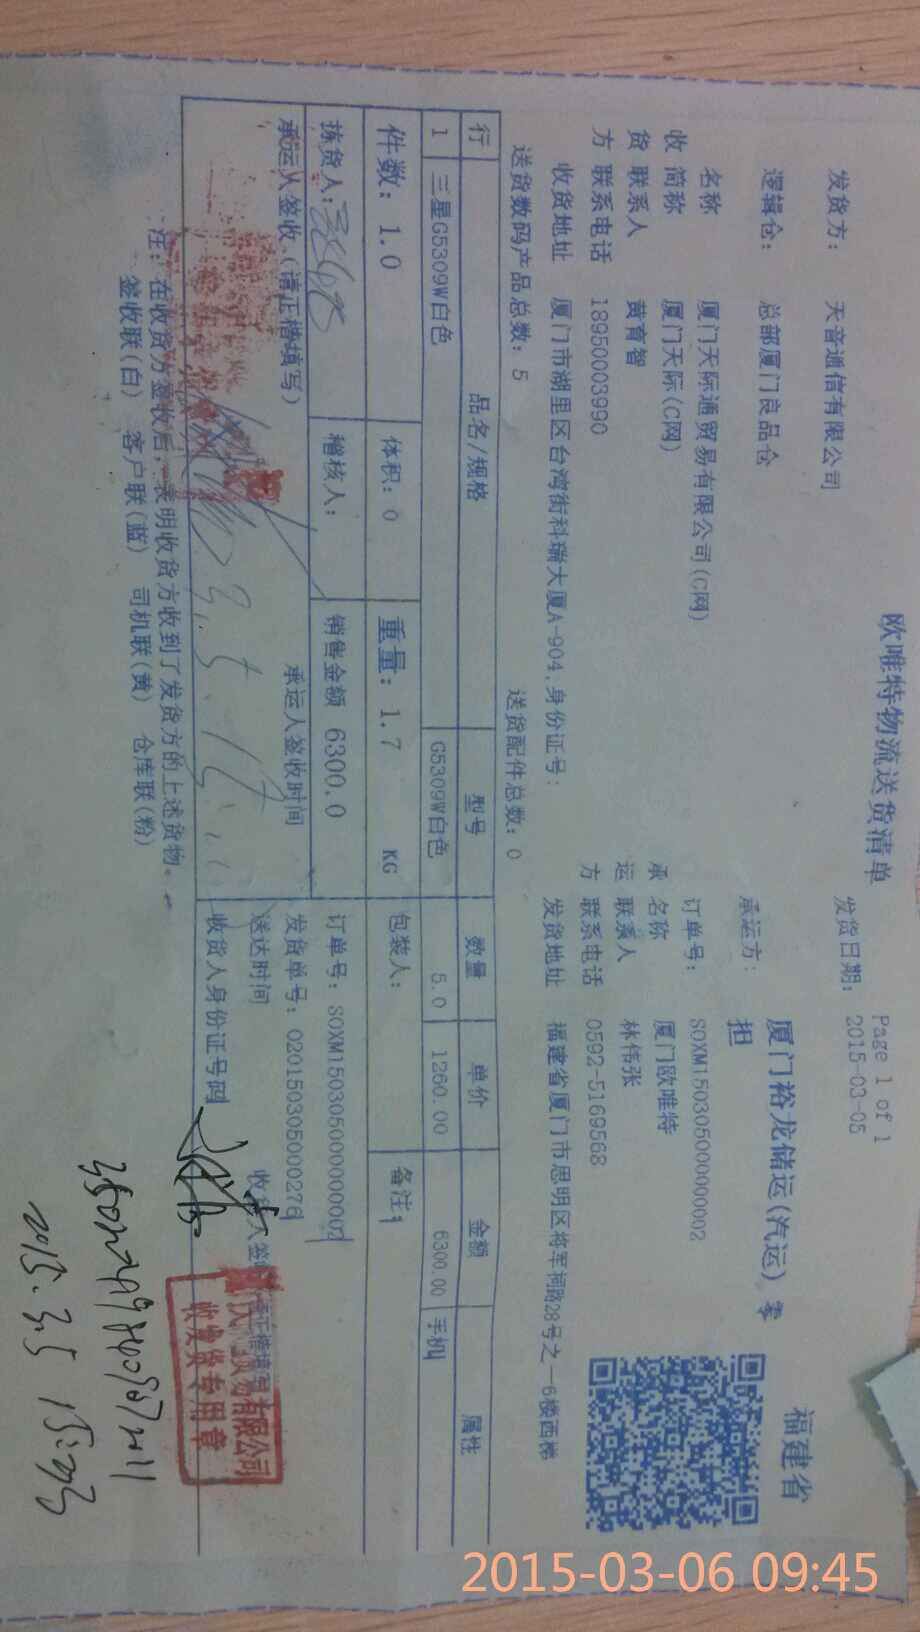 欧唯特物流送货清单
Page 1 of 1
福建省
发货方： 天音通信有限公司
发货日期： 2015-03-05
逻辑仓： 总部厦门良品仓
承运方： 厦门裕龙储运(汽运)零担
收货方
名称 厦门天际通贸易有限公司(C网)
订单号： SOXM15030500000002
简称 厦门天际(C网)
承运方
名称 厦门欧唯特
联系人 黄育智
联系人 林伟张
联系电话 18950003990
联系电话 0592-5169568
收货地址 厦门市湖里区台湾街科瑞大厦A-904,身份证号：
发货地址 福建省厦门市思明区将军祠路28号之一6楼西梯
送货数码产品总数：5 送货配件总数：0
行 品名/规格 型号 数量 单价 金额 属性
1 三星G5309W白色 G5309W白色 5.0 1260.00 6300.00 手机
件数：1.0 体积：0 重量：1.7 KG 包装人： 备注：
拣货人： 稽核人： 销售金额 6300.0 订单号：SOXM15030500000002
承运人签收（请正楷填写） 承运人签收时间 发货单号：020150305000276
送达时间
收货人身份证号码
注：在收货方签收后，表明收货方收到了发货方的上述货物。
签收联(白) 客户联(蓝) 司机联(黄) 仓库联(粉)
贸易有限公司
收发货专用章
2015-03-06 09:45